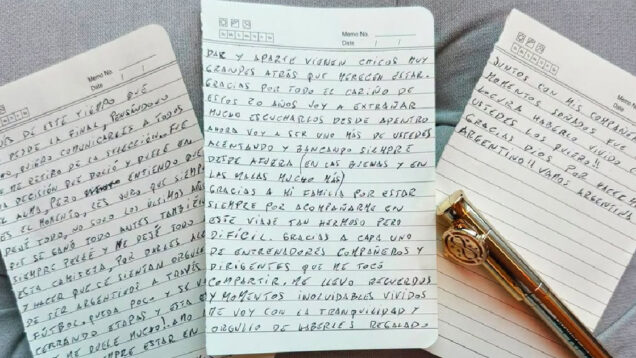 Memo No.
Date / /
DE ESTE TIEMPO QUE
DESDE LA FINAL, PENSANDO
QUIERO COMUNICARLES A TODOS
ME RETIRO DE LA SELECCION. FUE
DECISION QUE DOLIÓ Y DUELE EN
EL ALMA, PERO ENTIENDO QUE
ES EL MOMENTO, LES JURO QUE SIEMPRE
DEJÉ TODO, NO SOLO LOS ULTIMOS AÑOS
QUE SE GANÓ TODO ANTES TAMBIÉN
SIEMPRE PELEÉ Y ME DEJÉ TODO
ESTA CAMISETA, POR DARLES ALEGRIAS
Y HACER QUE SE SIENTAN ORGULLOSOS
DE SER ARGENTINOS A TRAVÉS
FÚTBOL. QUEDA POCO Y SE VAN
CERRANDO ETAPAS Y ESTA ES
ME DUELE MUCHO! AMO
SIEMPRE ESTAR EN
Memo No.
Date / /
DAR Y APARTE VIENEN CHICOS MUY
GRANDES ATRÁS QUE MERECEN ESTAR.
GRACIAS POR TODO EL CARIÑO DE
ESTOS 20 AÑOS VOY A EXTRAÑAR
MUCHO ESCUCHARLOS DESDE ADENTRO
AHORA VOY A SER UNO MÁS DE USTEDES
ALENTANDO Y BANCANDO SIEMPRE
DESDE AFUERA (EN LAS BUENAS Y EN
LAS MALAS MUCHO MÁS)
GRACIAS A MI FAMILIA POR ESTAR
SIEMPRE POR ACOMPAÑARME EN
ESTE VIAJE TAN HERMOSO PERO
DIFÍCIL. GRACIAS A CADA UNO
DE ENTRENADORES COMPAÑEROS Y
DIRIGENTES QUE ME TOCÓ
COMPARTIR, ME LLEVO RECUERDOS
Y MOMENTOS INOLVIDABLES VIVIDOS
ME VOY CON LA TRANQUILIDAD Y
ORGULLO DE HABERLES REGALADO
Memo No.
Date / /
JUNTOS CON MIS COMPAÑEROS
MOMENTOS SOÑADOS FUE
LOCURA HABERLO VIVIDO
USTEDES LOS QUIERO!!
GRACIAS DIOS POR HACER
ARGENTINO!! VAMOS ARGENTINA